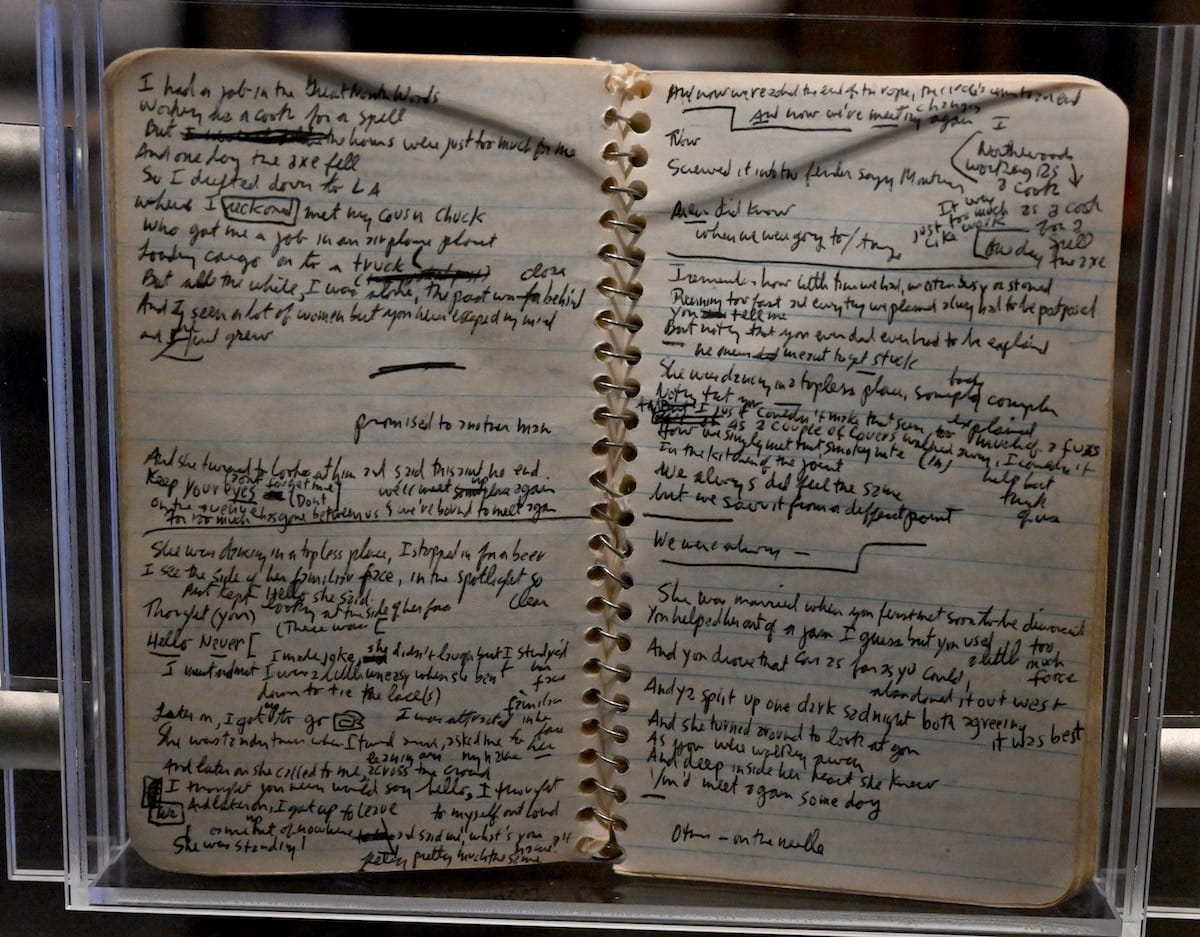 I had a job in the Great North Woods
Working as a cook for a spell
But the hours were just too much for me
And one day the axe fell
So I drifted down to LA
where I reckoned met my cousin Chuck
Who got me a job in an airplane plant
Loading cargo on to a truck
But all the while, I was alone, the past was close behind
And I seen a lot of women but you never escaped my mind
and I just grew
promised to another man
And she turned to look at him and said this aint no end
Keep your eyes (Dont forget me) we'll meet up again
on the avenue (Dont
for too much has gone between us & we're bound to meet again
She was dancing in a topless place, I stopped in for a beer
I see the side of her familiar face, in the spotlight so clear
Hello she said
looking at the side of her face
Thought (you)
(There was [
Hello Never [
I made joke, she didn't laugh but I studied her face
I was a little uneasy when she bent
down to tie the lace(s)
familiar
Later on, I got up to go
I was attracted into her face
She was standing there when I turned around, asked me for my name
And later on she called to me, across the crowd
I thought you never would say hello, I thought
And later on, I got up to leave to myself out loud
came out of nowhere and said me, what's your name?
She was standing!
pretty much the same
And now we reached the end of the rope, the circle's come to an end
And now we're meeting again
changes
I
Now
(Northwoods
working as
a cook
Screwed it into the fender sayin Montrey
It was
too much as a cook
just like work for a spell
one day the axe
did know
when we were going to/try
I remember how little time we had, we often busy or stoned
Running too fast and everything we planned always had to be postponed
you tell me
But nothing that you ever did ever had to be explained
we meant to get stuck
She was dancing in a topless place,
Nothing that you
explained
I just couldn't make that scene, too much of a fuss
As a couple of lovers walked away, I couldn't help but think of us
How we simply met that smokey nite (in)
In the kitchen of the joint
We always did feel the same
but we saw it from a different point
We were always —
She was married when you first met soon to be divorced
You helped her out of a jam I guess but you used a little too much force
And you drove that car as far as you could,
abandoned it out west
And ya split up one dark sad night both agreeing it was best
And she turned around to look at you
As you were walking away
And deep inside her heart she knew
You'd meet again some day